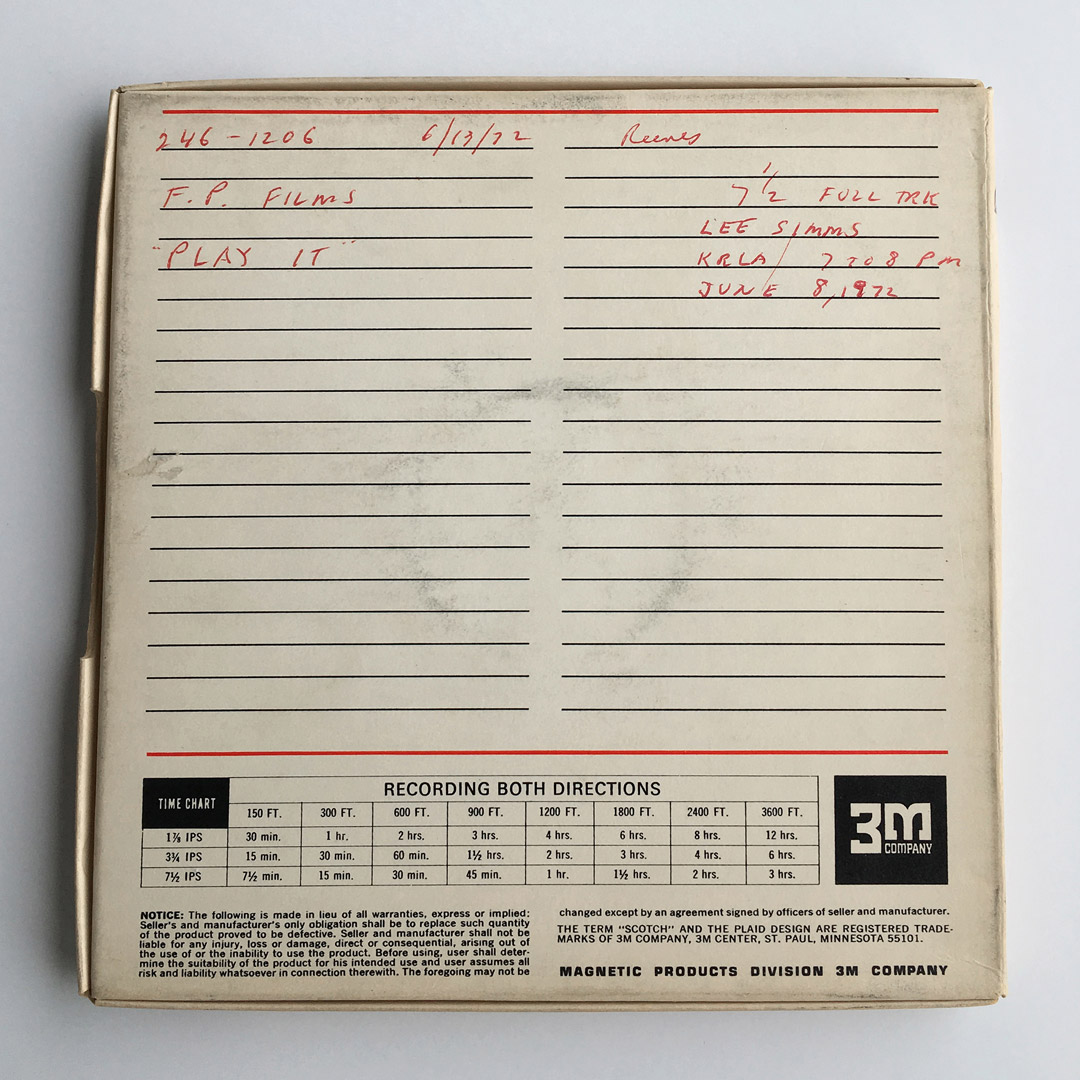 246-1206 6/13/72
F.P. FILMS
"PLAY IT"
Reeves
7 1/2 FULL TRK
LEE SIMMS
KRLA / 7 TO 8 PM
JUNE 8, 1972
TIME CHART
RECORDING BOTH DIRECTIONS
150 FT. 300 FT. 600 FT. 900 FT. 1200 FT. 1800 FT. 2400 FT. 3600 FT.
1⅞ IPS 30 min. 1 hr. 2 hrs. 3 hrs. 4 hrs. 6 hrs. 8 hrs. 12 hrs.
3¾ IPS 15 min. 30 min. 60 min. 1½ hrs. 2 hrs. 3 hrs. 4 hrs. 6 hrs.
7½ IPS 7½ min. 15 min. 30 min. 45 min. 1 hr. 1½ hrs. 2 hrs. 3 hrs.
3M
COMPANY
NOTICE: The following is made in lieu of all warranties, express or implied;
Seller's and manufacturer's only obligation shall be to replace such quantity
of the product proved to be defective. Seller and manufacturer shall not be
liable for any injury, loss or damage, direct or consequential, arising out of
the use of or the inability to use the product. Before using, user shall deter-
mine the suitability of the product for his intended use and user assumes all
risk and liability whatsoever in connection therewith. The foregoing may not be
changed except by an agreement signed by officers of seller and manufacturer.
THE TERM "SCOTCH" AND THE PLAID DESIGN ARE REGISTERED TRADE-
MARKS OF 3M COMPANY, 3M CENTER, ST. PAUL, MINNESOTA 55101.
MAGNETIC PRODUCTS DIVISION 3M COMPANY